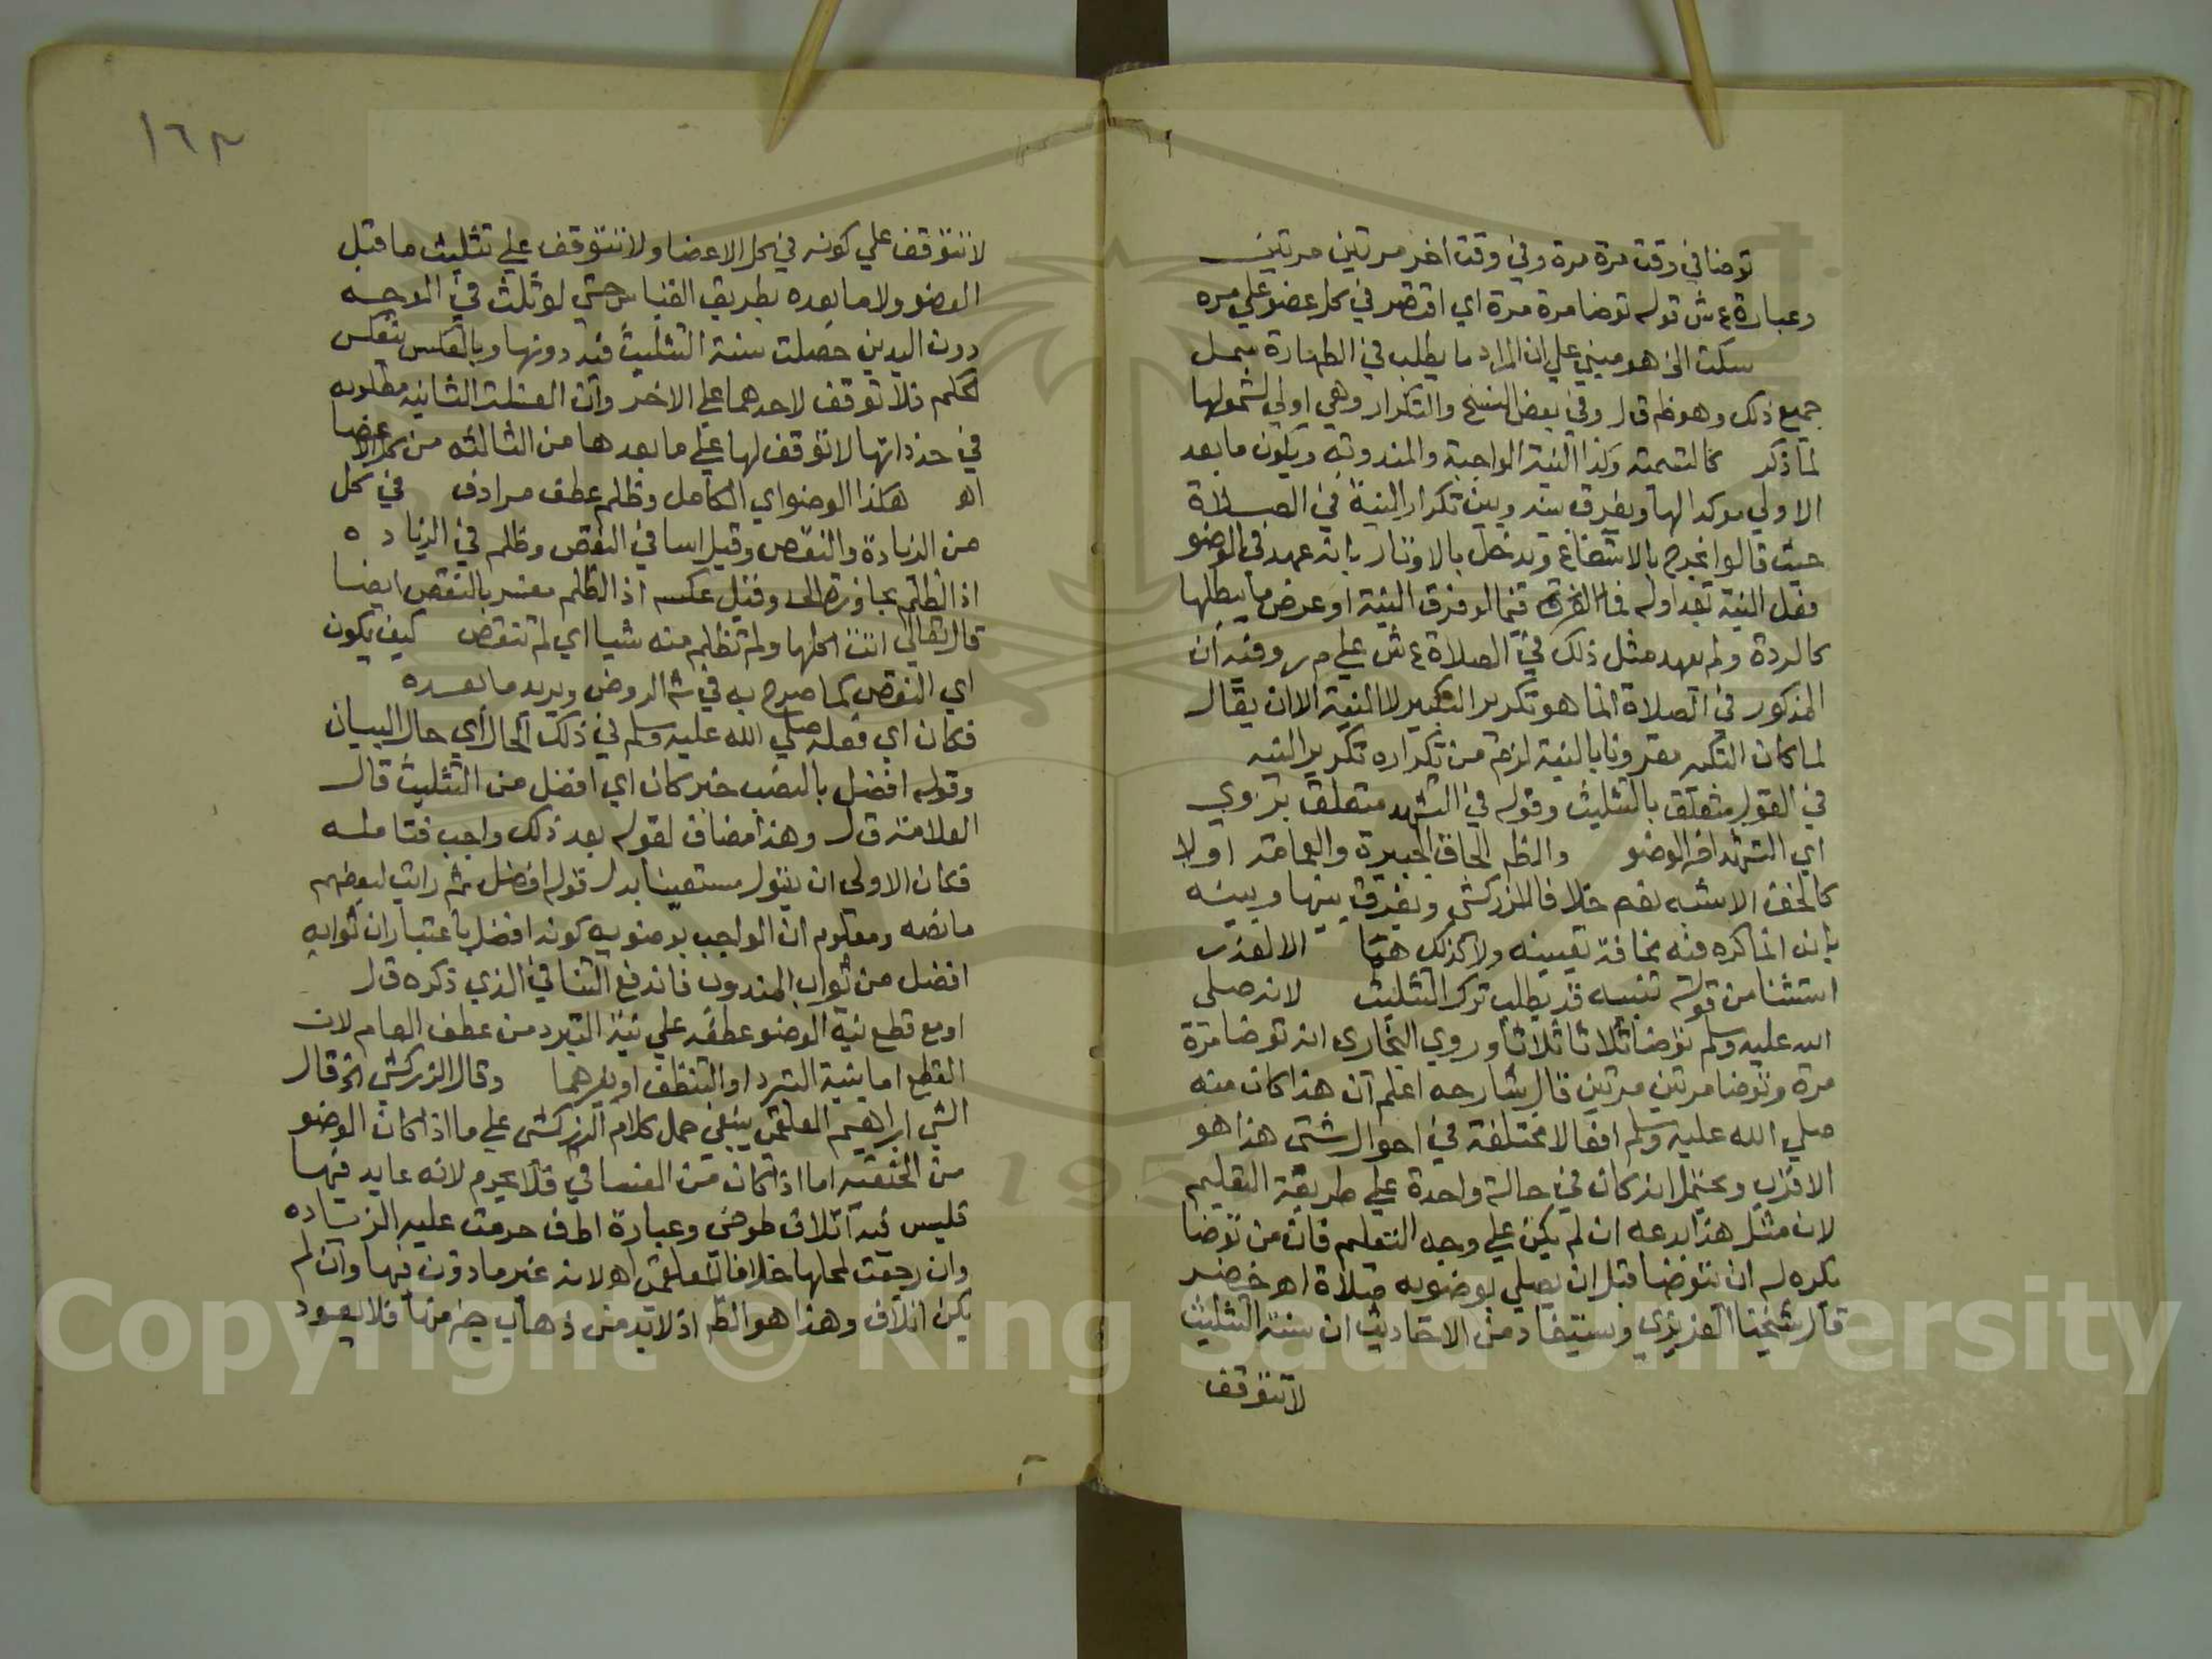 توضا في وقت مرة مرة وفي وقت اخر مرتين مرتين
وعبارة ع ش قوله توضا مرة مرة اي اقتصر في كل عضو علي مره
سكت الخ هو مبني علي ان المراد ما يطلب في الطهارة يشمل
جميع ذلك وهو ظم قال وفي بعض النسخ والتكرار وهي اولي لشمولها
لما ذكر كالتسمية وكذا النية الواجبة والمندوبة ويكون ما بعد
الاولي موكدا لها ويفرق بينه وبين تكرار النية في الصلاة
حيث قالوا يخرج بالاشفاع ويدخل بالاوتار بانه عهد في الوضو
فعل النية بعد اوله فيما لو فرق النية او عرض ما يبطلها
كالردة ولم يعهد مثل ذلك في الصلاة ع ش علي م ر وفيه ان
المذكور في الصلاة انما هو تكرير التكبير لا النية الا ان يقال
لما كان التكبير مقرونا بالنية لزم من تكراره تكرير النيه
في القول متعلق بالتثليث وقوله في التشهد متعلق بتروي
اي التشهد اخر الوضو والظم الحاق الجبيرة والعمامة اولا
كالخف الاشبه نعم خلافا للزركشي ويفرق بينها وبينه
بان انما كره فيه مخافة تعييبه ولا كذلك هنا الا لعذر
استثنا من قوله تنبيه قد يطلب ترك التثليث لانه صلى
الله عليه وسلم توضا ثلاثا ثلاثا وروي البخارى انه توضا مرة
مرة وتوضا مرتين مرتين قال شارحه اعلم ان هذا كان منه
صلي الله عليه وسلم افعالا مختلفة في احوال شتى هذا هو
الاقرب ويحتمل انه كان في حالة واحدة علي طريقة التعليم
لان مثل هذا بدعه ان لم يكن علي وجه التعلم فان من توضا
يكره له ان يتوضا قبل ان يصلي بوضوءه صلاة اه خضر
قال شيخنا العزيزي وستفاد من الاحاديث ان سنة التثليث
لا تتوقف
١٦٣
لا تتوقف علي كونه في كل الاعضا ولا تتوقف علي تثليث ما قبل
العضو ولا ما بعده بطريق القياس حتي لو ثلث في الوجه
دون اليدين حصلت سنة التثليث فيه دونها وبالعكس بعكس
فلا توقف لاحدهما علي الاخر وان الغسلة الثانيه مطلوبه
في حد ذاتها لا توقف لها علي ما بعدها من الثالثه من كل الاعضا
اه هكذا الوضو اي الكامل وظلم عطف مرادف في كل
من الزيادة والنقص وقيل اسا في النقص وظلم في الزياده
اذ الظلم مجاوزة الحد وقيل عكسه اذ الظلم مفسر بالنقص ايضا
قال تعالي اتت اكلها ولم تظلم منه شيا اي لم تنقص كيف يكون
اي النقص كما صرح به في شم الروض ويريد ما بعده
فكان اي فعله صلي الله عليه وسلم في ذلك الحال اي حال البيان
وقوله افضل بالنصب خبر كان اي افضل من التثليث قال
العلامة ق ل وهذا مضاف لقوله بعد ذلك واجب فتامله
فكان الاولى ان يقول مستعينا بدل قوله افضل ثم رايت لبعضهم
ما نصه ومعلوم ان الواجب يوصف بكونه افضل باعتبار ان ثوابه
افضل من ثواب المندوب فاندفع التنافي الذي ذكره ق ل
او مع قطع نية الوضو عطفه علي نية التبرد من عطف العام لان
القطع اما بنية التبرد او التنظف او بغيرهما وقال الزركشي الخ قال
الشيخ ابراهيم العلقمي ينبغي حمل كلام الزركشى علي ما اذا كان الوضو
من الحنفيه اما اذا كان من الفساقي فلا يحرم لانه عايد فيها
فليس فيه اتلاف طوخي وعبارة اطف حرمت عليه الزياده
وان رجعت لمحلها خلافا للعلقمي اه لانه غير ماذون فيها وان لم
يكن اتلاف وهذا هو الظم اذ لابد من ذهاب جزء منها فلا يعود
Copyright © King Saud University
1957